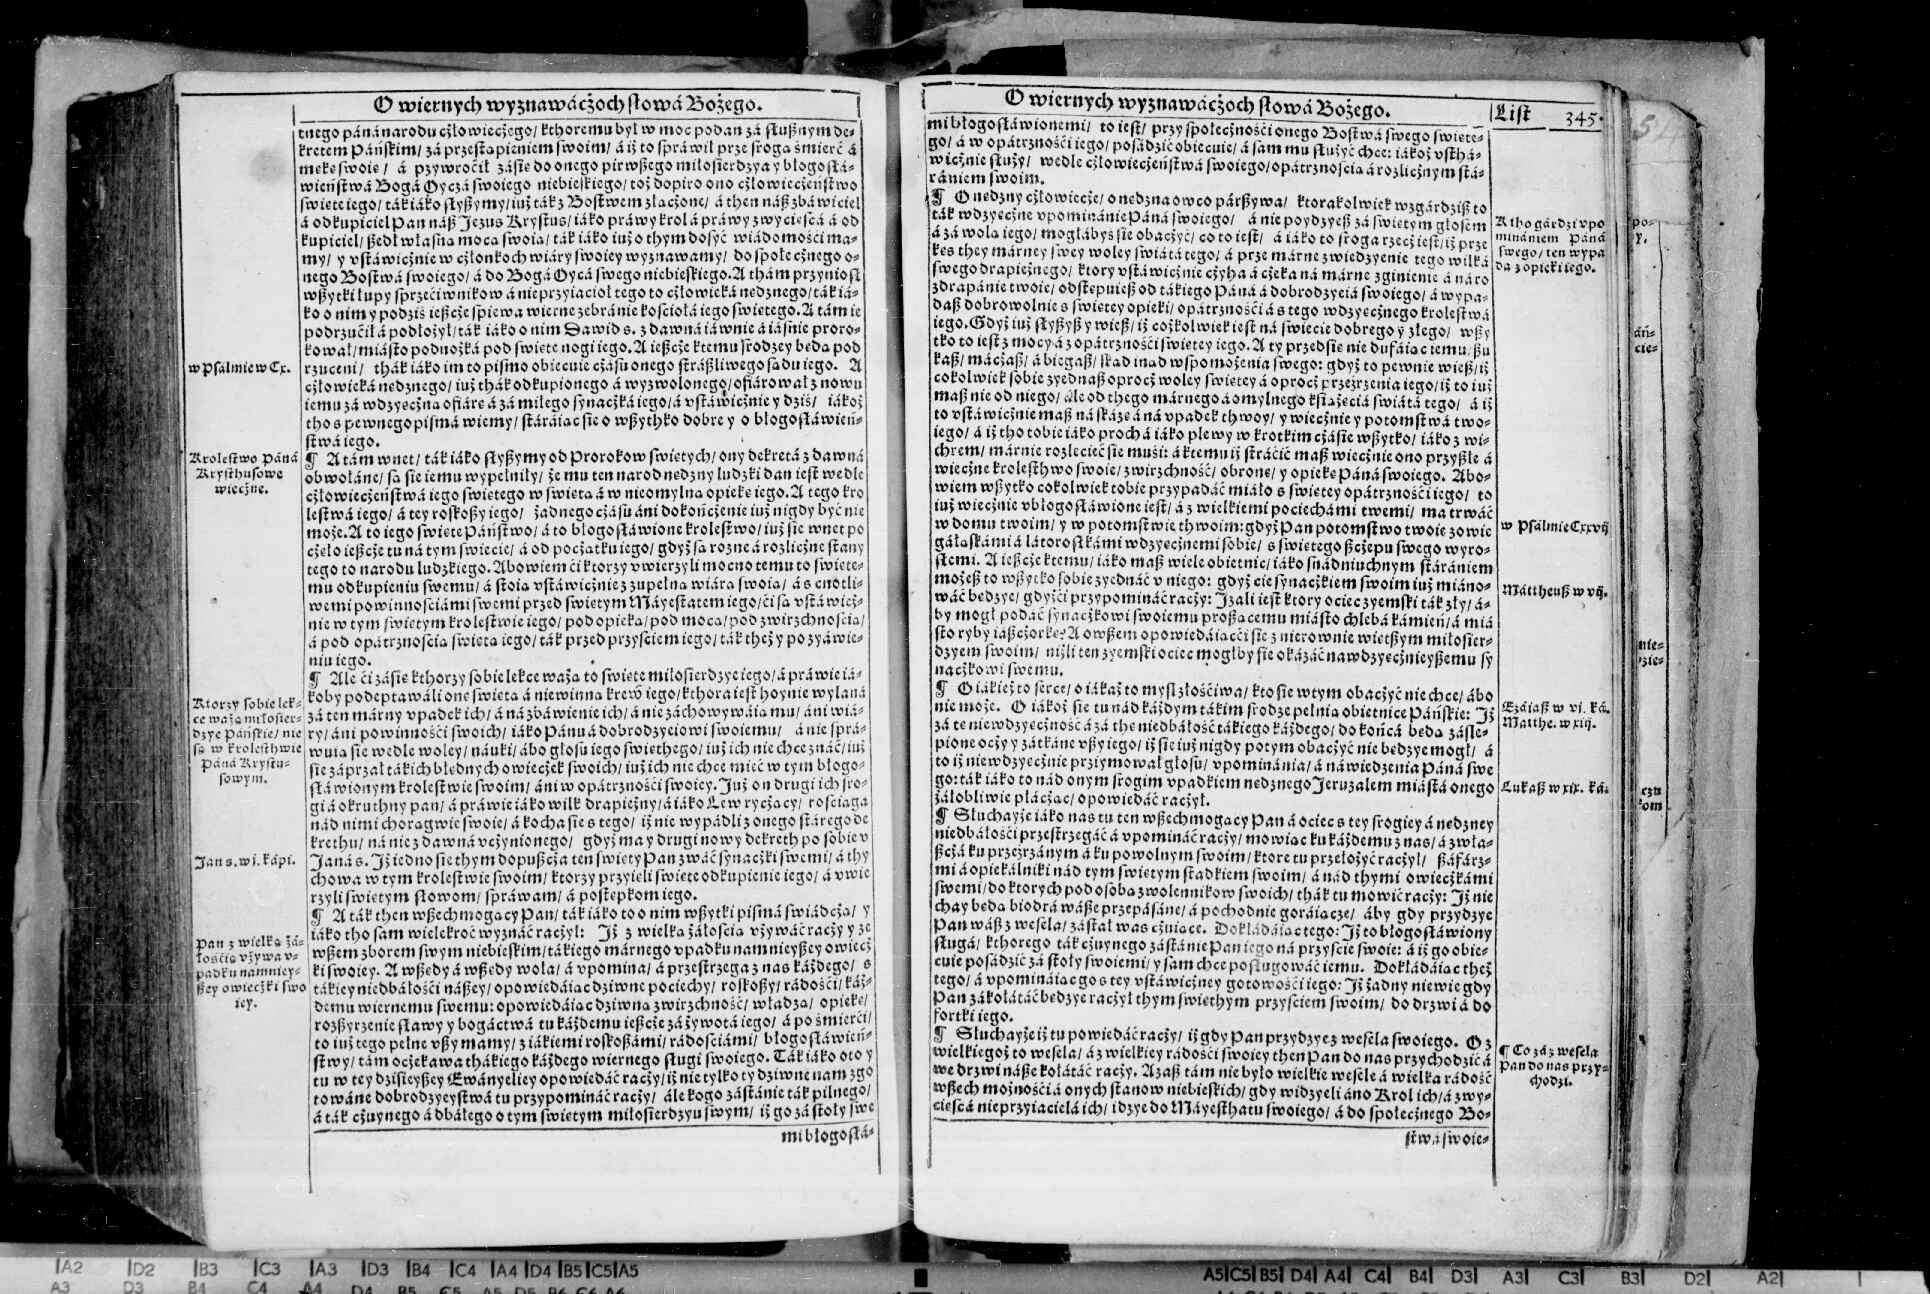 O wiernych wyznawácżoch słowá Bożego.
tnego páná narodu cżłowiecżego/ kthoremu był w moc podan zá słußnym de-
kretem Páńskim/ zá przestąpieniem swoim/ á iż to spráwił prze srogą śmierć á
mękę swoię/ á przywrocił zásię do onego pirwßego miłosierdzya y błogosłá-
wieństwá Bogá Oyczá swoiego niebieskiego/ toż dopiro ono cżłowiecżeństwo
święte iego/ ták iáko słyßymy/ iuż ták z Bostwem złącżone/ á then náß zbáwiciel
á odkupiciel Pan náß Jezus Krystus/ iáko práwy krol á práwy zwycięscá á od
kupiciel/ ßedł własną mocą swoią/ ták iáko iuż o thym dosyć wiádomości ma-
my/ y vstáwicżnie w cżłonkoch wiáry swoiey wyznawamy/ do społecżnego o-
nego Bostwá swoiego/ á do Bogá Oycá swego niebieskiego. A thám przyniosł
wßytki łupy sprzeciwnikow á nieprzyiacioł tego to cżłowieká nędznego/ ták iá-
ko o nim y podziś ießcże śpiewa wierne zebránie kościołá iego świętego. A tám ie
podrzucił á podłożył/ ták iáko o nim Dawid s. z dawná iáwnie á iáśnie proro-
kował/ miásto podnożká pod święte nogi iego. A ießcże ktemu srodzey będą pod
w Psalmie w Cx.
rzuceni/ thák iáko im to pismo obiecuie cżásu onego stráßliwego sądu iego. A
cżłowieká nędznego/ iuż thák odkupionego á wyzwolonego/ ofiárował z nowu
iemu zá wdzyęcżną ofiárę á zá miłego synacżká iego/ á vstáwicżnie y dziś/ iákoż
tho s pewnego pismá wiemy/ stáráiąc się o wßythko dobre y o błogosłáwień-
stwá iego.
Krolestwo Páná
Krysthusowe
wiecżne.
¶ A tám wnet/ ták iáko słyßymy od Prorokow świętych/ ony dekretá z dawná
obwołáne/ są się iemu wypełniły/ że mu ten narod nędzny ludzki dan iest wedle
cżłowiecżeństwá iego świętego w świętą á w nieomylną opiekę iego. A tego kro
lestwá iego/ á tey roskoßy iego/ żadnego cżásu áni dokońcżenie iuż nigdy być nie
może. A to iego święte Páństwo/ á to błogosłáwione krolestwo/ iuż się wnet po
cżęło ießcże tu ná tym świecie/ á od pocżątku iego/ gdyż są rozne á rozlicżne stany
tego to narodu ludzkiego. Abowiem ći ktorzy vwierzyli mocno temu to święte-
mu odkupieniu swemu/ á stoią vstáwicżnie z zupełną wiárą swoią/ á s cnotli-
wemi powinnościámi swemi przed świętym Máyestatem iego/ ći są vstáwicż-
nie w tym świętym krolestwie iego/ pod opieką/ pod mocą/ pod zwirzchnością/
á pod opátrznością świętą iego/ ták przed przyściem iego/ ták theż y po zyáwie-
niu iego.
Ktorzy sobie lek-
ce ważą miłosier-
dzye Páńskie/ nie
są w krolesthwie
Páná Krystu-
sowym.
¶ Ale ći zásię kthorzy sobie lekce ważą to święte miłosierdzye iego/ á práwie iá-
koby podeptawáli onę świętą á niewinną krew iego/ kthora iest hoynie wylana
zá ten márny vpadek ich/ á ná zbáwienie ich/ á nie záchowywáią mu/ áni wiá-
ry/ áni powinności swoich/ iáko Pánu á dobrodzyeiowi swoiemu/ á nie sprá-
wuią się wedle woley/ náuki/ ábo głosu iego świethego/ iuż ich nie chce znáć/ iuż
się záprzał tákich błędnych owiecżek swoich/ iuż ich nie chce mieć w tym błogo-
słáwionym krolestwie swoim/ áni w opátrzności swoiey. Już on drugi ich sro-
gi á okruthny pan/ á práwie iáko wilk drapieżny/ á iáko Lew rycżący/ rościąga
nád nimi chorągwie swoie/ á kocha się s tego/ iż nie wypádli z onego stárego de
krethu/ ná nie z dawná vcżynionego/ gdyż ma y drugi nowy dekreth po sobie v
Jan s. w j. kápi.
Janá s. Iż iedno się thym dopußcża ten święty Pan zwáć synacżki swemi/ á thy
chowa w tym krolestwie swoim/ ktorzy przyięli święte odkupienie iego/ á vwie
rzyli świętym słowom/ spráwam/ á postępkom iego.
¶ A ták then wßechmogący Pan/ ták iáko to o nim wßytki pismá świádcżą/ y
iáko tho sam wielekroć wyznáć racżył: Iż z wielką żáłością vżywáć racży y ze
Pan z wielką żá-
łością vżywa v-
padku namniey-
ßey owiecżki swo
iey.
wßem zborem swym niebieskim/ tákiego márnego vpadku namnieyßey owiecż
ki swoiey. A wßędy á wßędy woła/ á vpomina/ á przestrzega z nas káżdego/ s
tákiey niedbáłości náßey/ opowiedáiąc dziwne pociechy/ roskoßy/ rádości/ káż-
demu wiernemu swemu: opowiedáiąc dziwną zwirzchność/ władzą/ opiekę/
rozßyrzenie sławy y bogáctwá tu káżdemu ießcże zá żywotá iego/ á po śmierci/
to iuż tego pełne vßy mamy/ z iákiemi roskoßámi/ rádościámi/ błogosłáwień-
stwy/ tám ocżekawa thákiego káżdego wiernego sługi swoiego. Ták iáko oto y
tu w tey dzisieyßey Ewányeliey opowiedáć racży/ iż nie tylko ty dziwne nam zgo
towáne dobrodzyeystwá tu przypomináć racży/ ále kogo zástánie ták pilnego/
á ták cżuynego á dbáłego o tym świętym miłosierdzyu swym/ iż go zá stoły swe
mi błogosłá-
O wiernych wyznawácżoch słowá Bożego. List 345.
mi błogosłáwionemi/ to iest/ przy społecżności onego Bostwá swego święte-
go/ á w opátrzności iego/ posádzić obiecuie/ á sam mu służyć chce: iákoż vsthá-
wicżnie służy/ wedle cżłowiecżeństwá swoiego/ opátrznością á rozlicżnym stá-
rániem swoim.
¶ O nędzny cżłowiecże/ o nędzna owco párßywa/ ktorakolwiek wzgárdziß to
ták wdzyęcżne vpominánie Páná swoiego/ á nie poydzyeß zá świętym głosem
Ktho gárdzi vpo
mináníem Páná
swego/ ten wypa
da z opieki iego.
á zá wolą iego/ mogłábyś się obacżyć/ co to iest/ á iáko to sroga rzecż iest/ iż prze
kęs they márney swey woley świátá tego/ á prze márne zwiedzyenie tego wilká
swego drapieżnego/ ktory vstáwicżnie cżyha á cżeka ná márne zginienie á ná ro
zdrapánie twoie/ odstępuieß od tákiego Páná á dobrodzyeiá swoiego/ á wypa-
daß dobrowolnie s świętey opieki/ opátrzności á s tego wdzyęcżnego krolestwá
iego. Gdyż iuż słyßyß y wieß/ iż cożkolwiek iest ná świecie dobrego y złego/ wßy
tko to iest z mocy á z opátrzności świętey iego. A ty przedsię nie dufáiąc iemu/ ßu
kaß/ mácaß/ á biegaß/ skąd inąd wspomożenia swego: gdyż to pewnie wieß/ iż
cokolwiek sobie zyednaß oprocż woley świętey á oprocż przeźrzenia iego/ iż to iuż
maß nie od niego/ ále od thego márnego á omylnego książęciá świátá tego/ á iż
to vstáwicżnie maß ná skázę á ná vpadek thwoy/ y wiecżnie y potomstwá two-
iego/ á iż tho tobie iáko proch á iáko plewy w krotkim cżásie wßytko/ iáko z wi-
chrem/ márnie rozlecieć się musi: á ktemu iż stráćić maß wiecżnie ono przyßłe á
wiecżne krolesthwo swoie/ zwirzchność/ obronę/ y opiekę Páná swoiego. Abo-
wiem wßytko cokolwiek tobie przypádáć miáło s świętey opátrzności iego/ to
iuż wiecżnie vbłogosłáwione iest/ á z wielkiemi pociechámi twemi/ ma trwáć
w Psalmie Cxxvij
w domu twoim/ y w potomstwie thwoim: gdyż Pan potomstwo twoie zowie
gáłąskámi á látoroskámi wdzyęcżnemi sobie/ s świętego ßcżepu swego wyro-
stemi. A ießcże ktemu/ iáko maß wiele obietnic/ iáko snádniuchnym stárániem
możeß to wßytko sobie zyednáć v niego: gdyż cię synacżkiem swoim iuż miáno-
Máttheuß w vij.
wáć będzye/ gdyżći przypomináć racży: Izali iest ktory ociec zyemski ták zły/ á-
by mogł podáć synacżkowi swoiemu proßącemu miásto chlebá kámień/ á miá
sto ryby iáßcżorkę? A owßem opowiedáiącći się z nierownie więtßym miłosier-
dzyem swoim/ niżli ten zyemski ociec mogłby się okázáć nawdzyęcżnieyßemu sy
nacżkowi swemu.
¶ O iákież to serce/ o iákaż to mysl złościwa/ kto się w tym obacżyć nie chce/ ábo
Ezáiaß w vj. ká.
Matthe. w xiij.
nie może. O iákoż się tu nád káżdym tákim srodze pełnią obietnice Páńskie: Iż
zá tę niewdzyęcżność á zá the niedbáłość tákiego káżdego/ do końcá będą záśle-
pione ocży y zátkáne vßy iego/ iż się iuż nigdy potym obacżyć nie będzye mogł/ á
to iż niewdzyęcżnie prziymował głosu/ vpominánia/ á náwiedzenia Páná swe
Lukaß w xix. ká.
go: ták iáko to nád onym srogim vpadkiem nędznego Jeruzalem miástá onego
żáłobliwie płácżąc/ opowiedáć racżył.
¶ Słuchayże iáko nas tu ten wßechmogący Pan á ociec s tey srogiey á nędzney
niedbáłości przestrzegáć á vpomináć racży/ mowiąc ku káżdemu z nas/ á zwła-
ßcżá ku przeźrzánym á ku powolnym swoim/ ktore tu przełożyć racżył/ ßáfárz-
mi á opiekálniki nád tym świętym stadkiem swoim/ á nád thymi owiecżkámi
swemi/ do ktorych pod osobą zwolennikow swoich/ thák tu mowić racży: Iż nie
chay będą biodrá wáße przepásáne/ á pochodnie goráiące/ áby gdy przydzye
Pan wáß z wesela/ zástał was cżuiące. Dokłádáiąc tego: Iż to błogosłáwiony
sługá/ kthorego ták cżuynego zástánie Pan iego ná przyście swoie: á iż go obie-
cuie posádzić zá stoły swoiemi/ y sam chce posługowáć iemu. Dokłádáiąc theż
tego/ á vpomináiąc go s tey vstáwicżney gotowości iego: Iż żadny nie wie gdy
Pan zákołátáć będzye racżył thym świethym przyściem swoim/ do drzwi á do
fortki iego.
¶ Słuchayże iż tu powiedáć racży/ iż gdy Pan przydzye z wesela swoiego. O z
¶ Co zá z wesela
Pan do nas przy-
chodzi.
wielkiegoż to wesela/ á z wielkiey rádości swoiey then Pan do nas przychodzić á
we drzwi náße kołátáć racży. Azaß tám nie było wielkie wesele á wielka rádość
wßech możności á onych stanow niebieskich/ gdy widzyeli ano Krol ich/ á zwy-
cięscá nieprzyiacielá ich/ idzye do Máyesthatu swoiego/ á do społecżnego Bo-
stwá swoie-